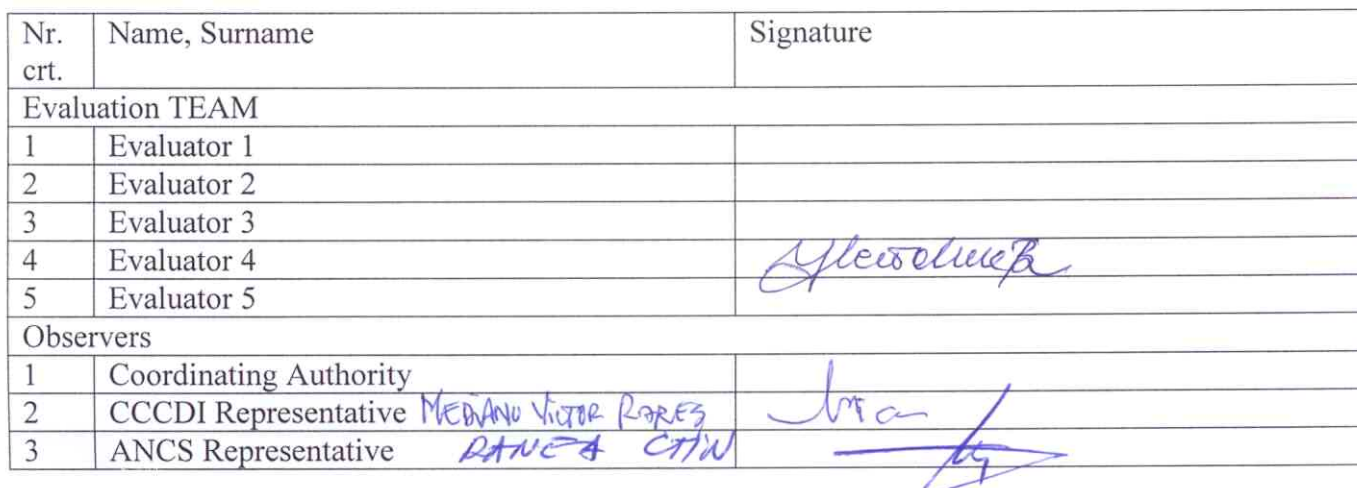 Nr. crt. Name, Surname Signature
Evaluation TEAM
1 Evaluator 1
2 Evaluator 2
3 Evaluator 3
4 Evaluator 4
5 Evaluator 5
Observers
1 Coordinating Authority
2 CCCDI Representative VICTOR RARES
3 ANCS Representative